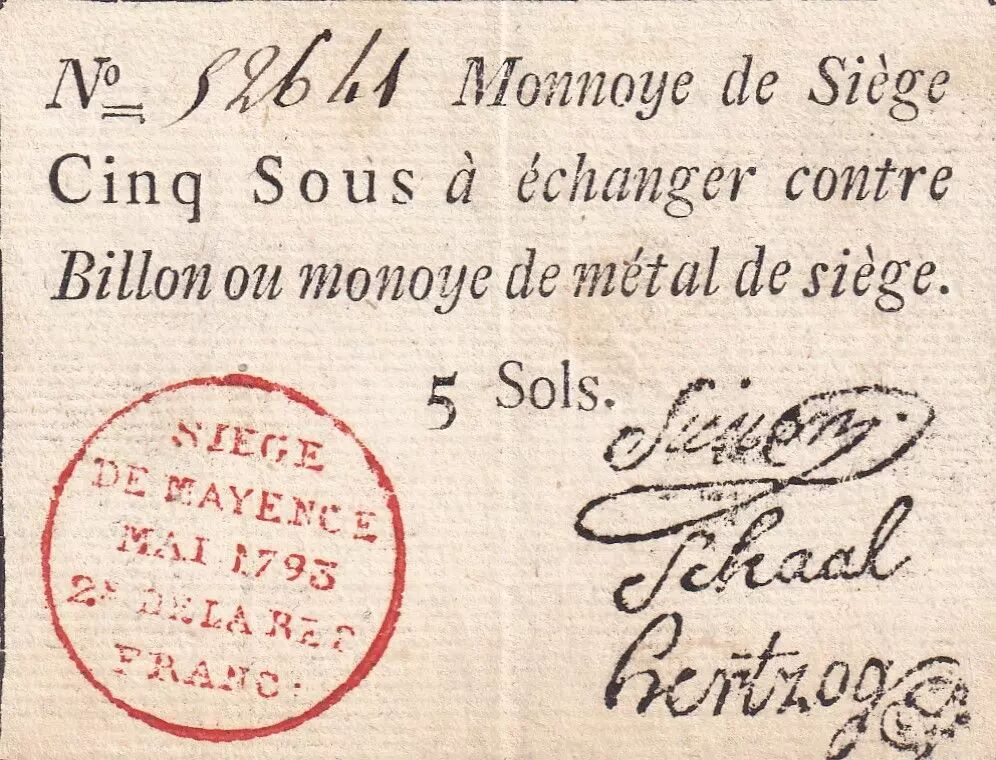 No 52641 Monnoye de Siège
Cinq Sous à échanger contre
Billon ou monoye de métal de siège.
5 Sols.
SIEGE
DE MAYENCE
MAI 1793
2e DE LA REP
FRANC:
Simon
Schaal
hertzog